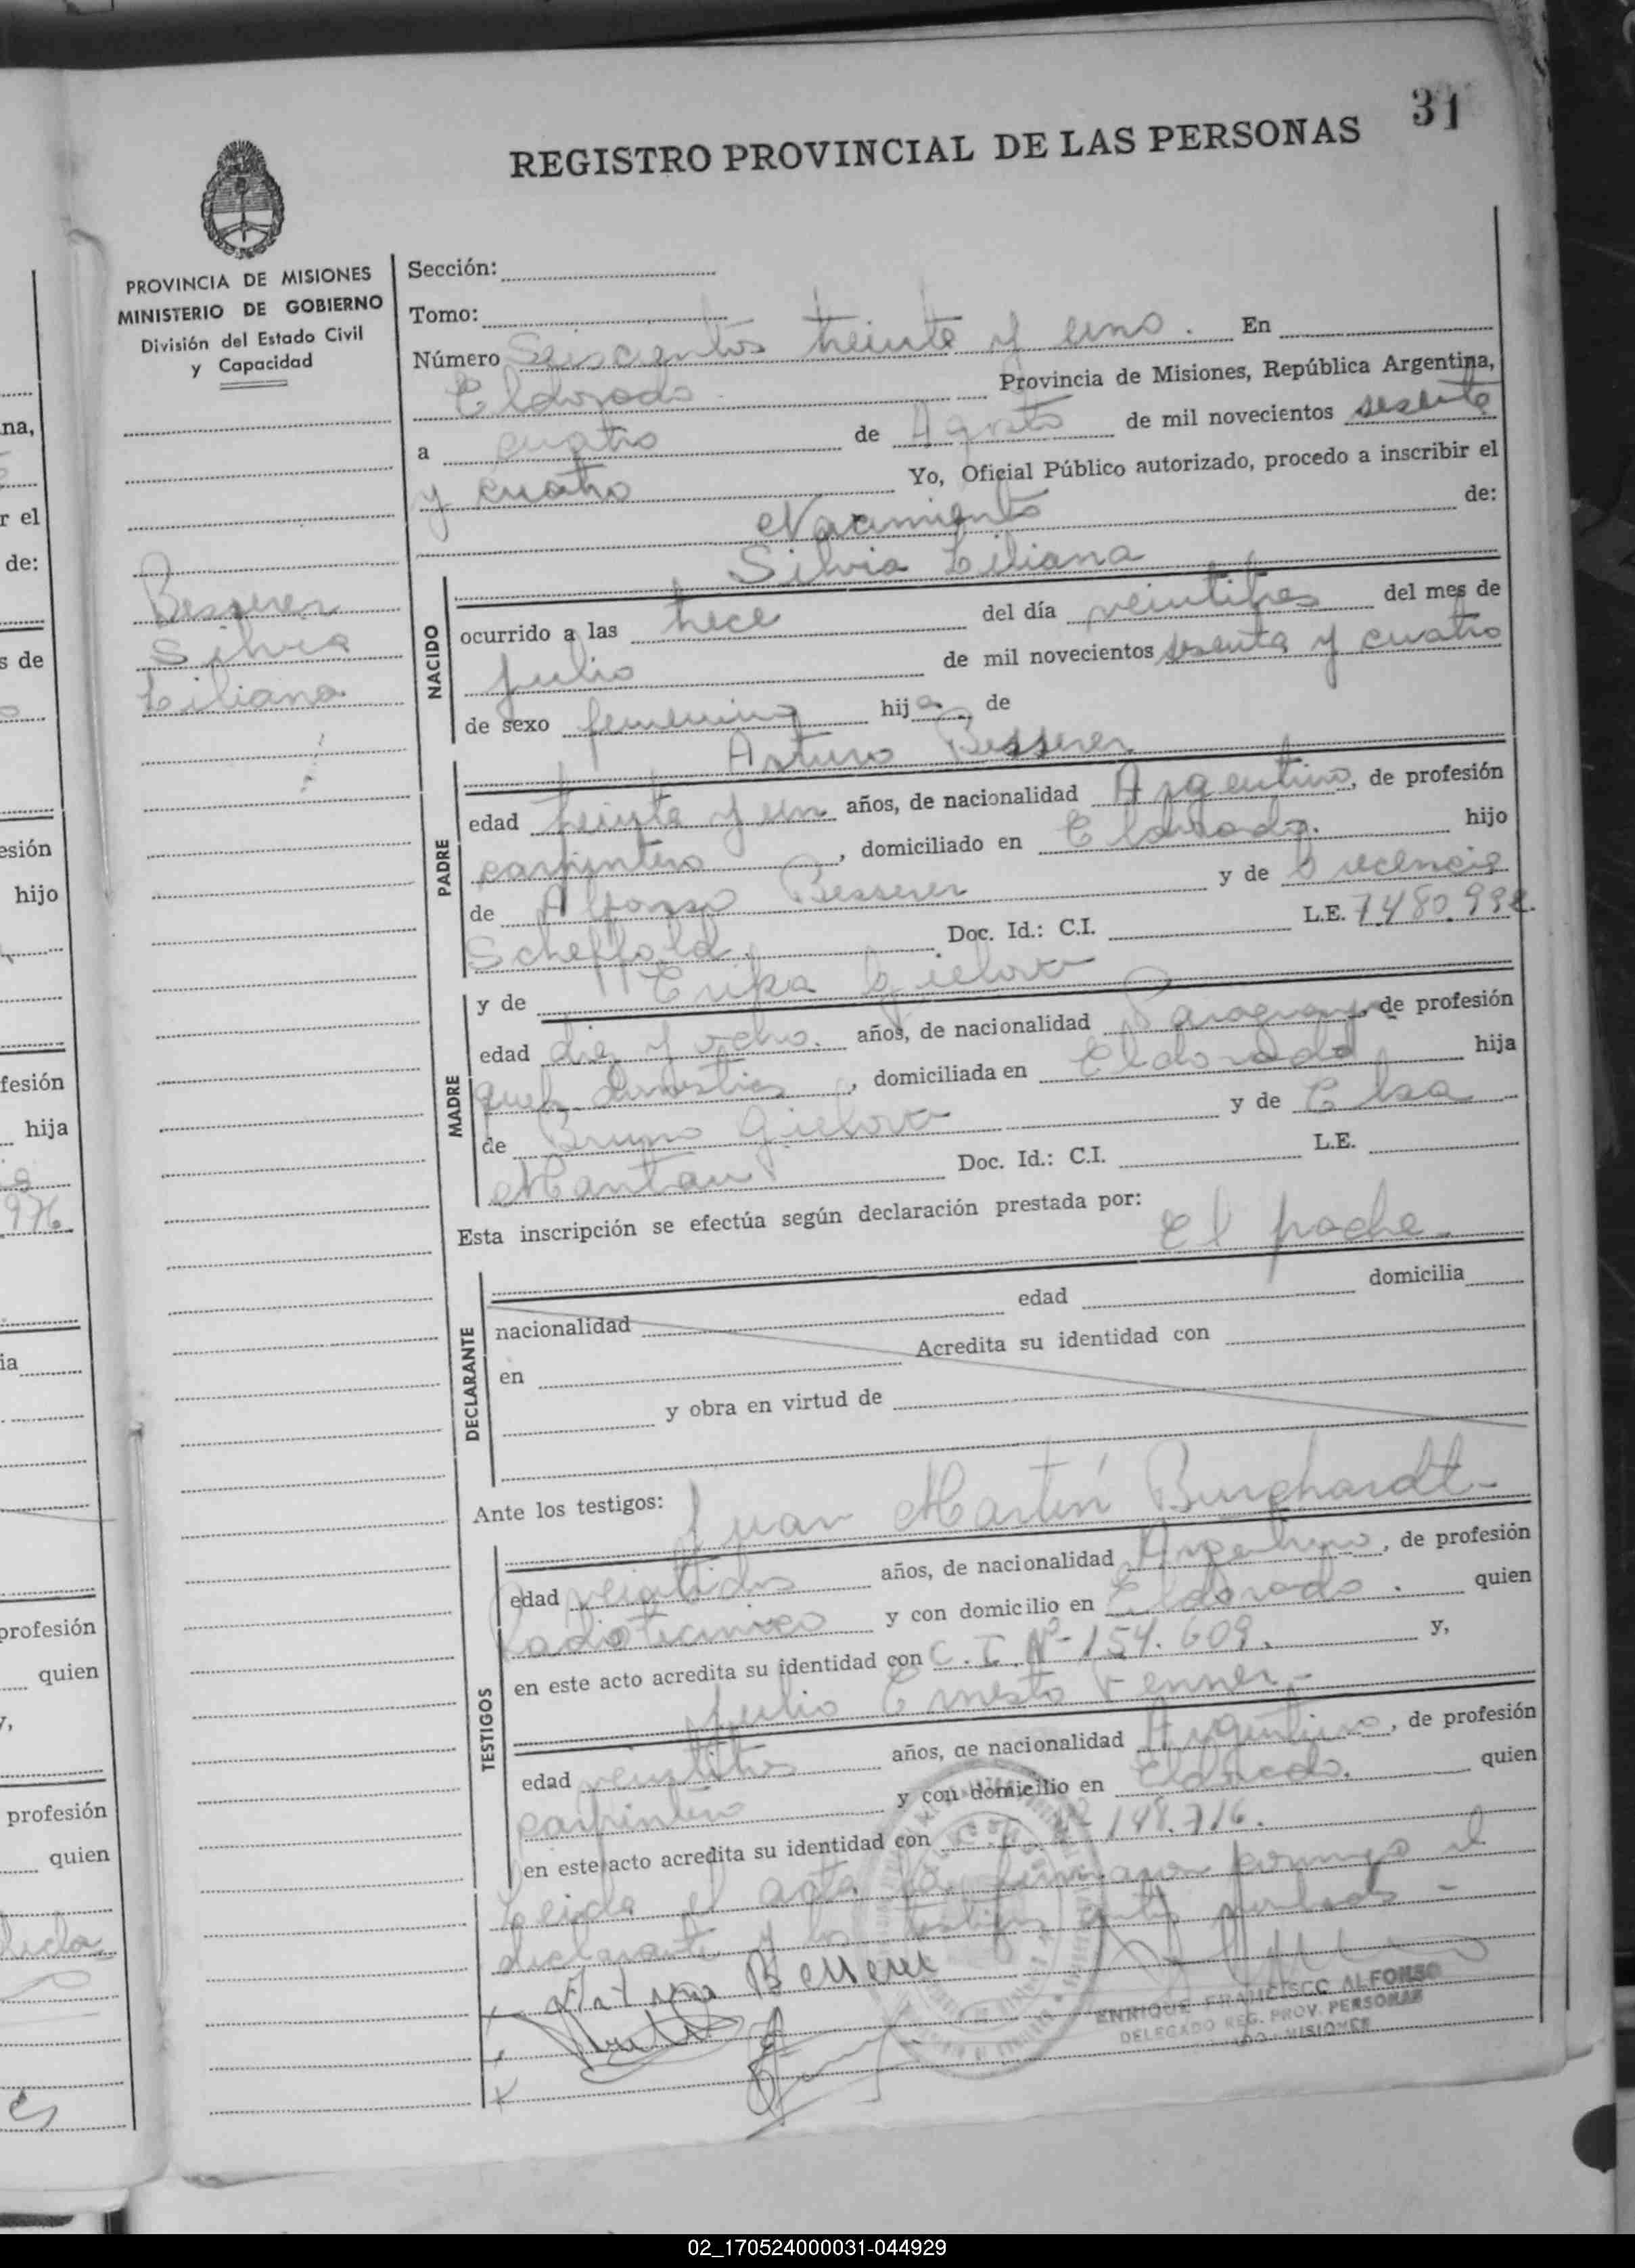 31
REGISTRO PROVINCIAL DE LAS PERSONAS
PROVINCIA DE MISIONES
MINISTERIO DE GOBIERNO
División del Estado Civil
y Capacidad
Besserer
Silvia
Liliana
Sección:
Tomo:
Número Seiscientos treinta y uno. En
Eldorado Provincia de Misiones, República Argentina,
a cuatro de Agosto de mil novecientos sesenta
y cuatro Yo, Oficial Público autorizado, procedo a inscribir el
Nacimiento de:
Silvia Liliana
NACIDO
ocurrido a las trece del día veintitres del mes de
julio de mil novecientos sesenta y cuatro
de sexo femenino hija de
Arturo Besserer
PADRE
edad treinta y un años, de nacionalidad Argentino, de profesión
carpintero, domiciliado en Eldorado. hijo
de Alfonso Besserer y de
Scheffold. Doc. Id.: C.I. L.E. 7.480.992.
y de Erika
MADRE
edad diez y ocho. años, de nacionalidad Paraguaya, de profesión
domésticos, domiciliada en Eldorado hija
de Bruno y de Elsa
Doc. Id.: C.I. L.E.
Esta inscripción se efectúa según declaración prestada por:
El padre.
DECLARANTE
nacionalidad edad domicilia
en Acredita su identidad con
y obra en virtud de
Ante los testigos: Juan Martín Burghardt-
TESTIGOS
edad veintidos años, de nacionalidad Argentino, de profesión
Radiotecnico y con domicilio en Eldorado. quien
en este acto acredita su identidad con C.I. Nº- 154.609. y,
Julio Ernesto Venner.-
edad veintitres años, de nacionalidad Argentino, de profesión
carpintero y con domicilio en Eldorado. quien
en este acto acredita su identidad con 148.716.
Leida el acta la firmaron conmigo el
declarante y los testigos
Arturo Besserer
ENRIQUE FRANCISCO ALFONSO
DELEGADO REG. PROV. PERSONAS
MISIONES
na,
r el
de:
s de
esión
hijo
fesión
hija
976
ia
profesión
quien
y,
profesión
quien
02_170524000031-044929